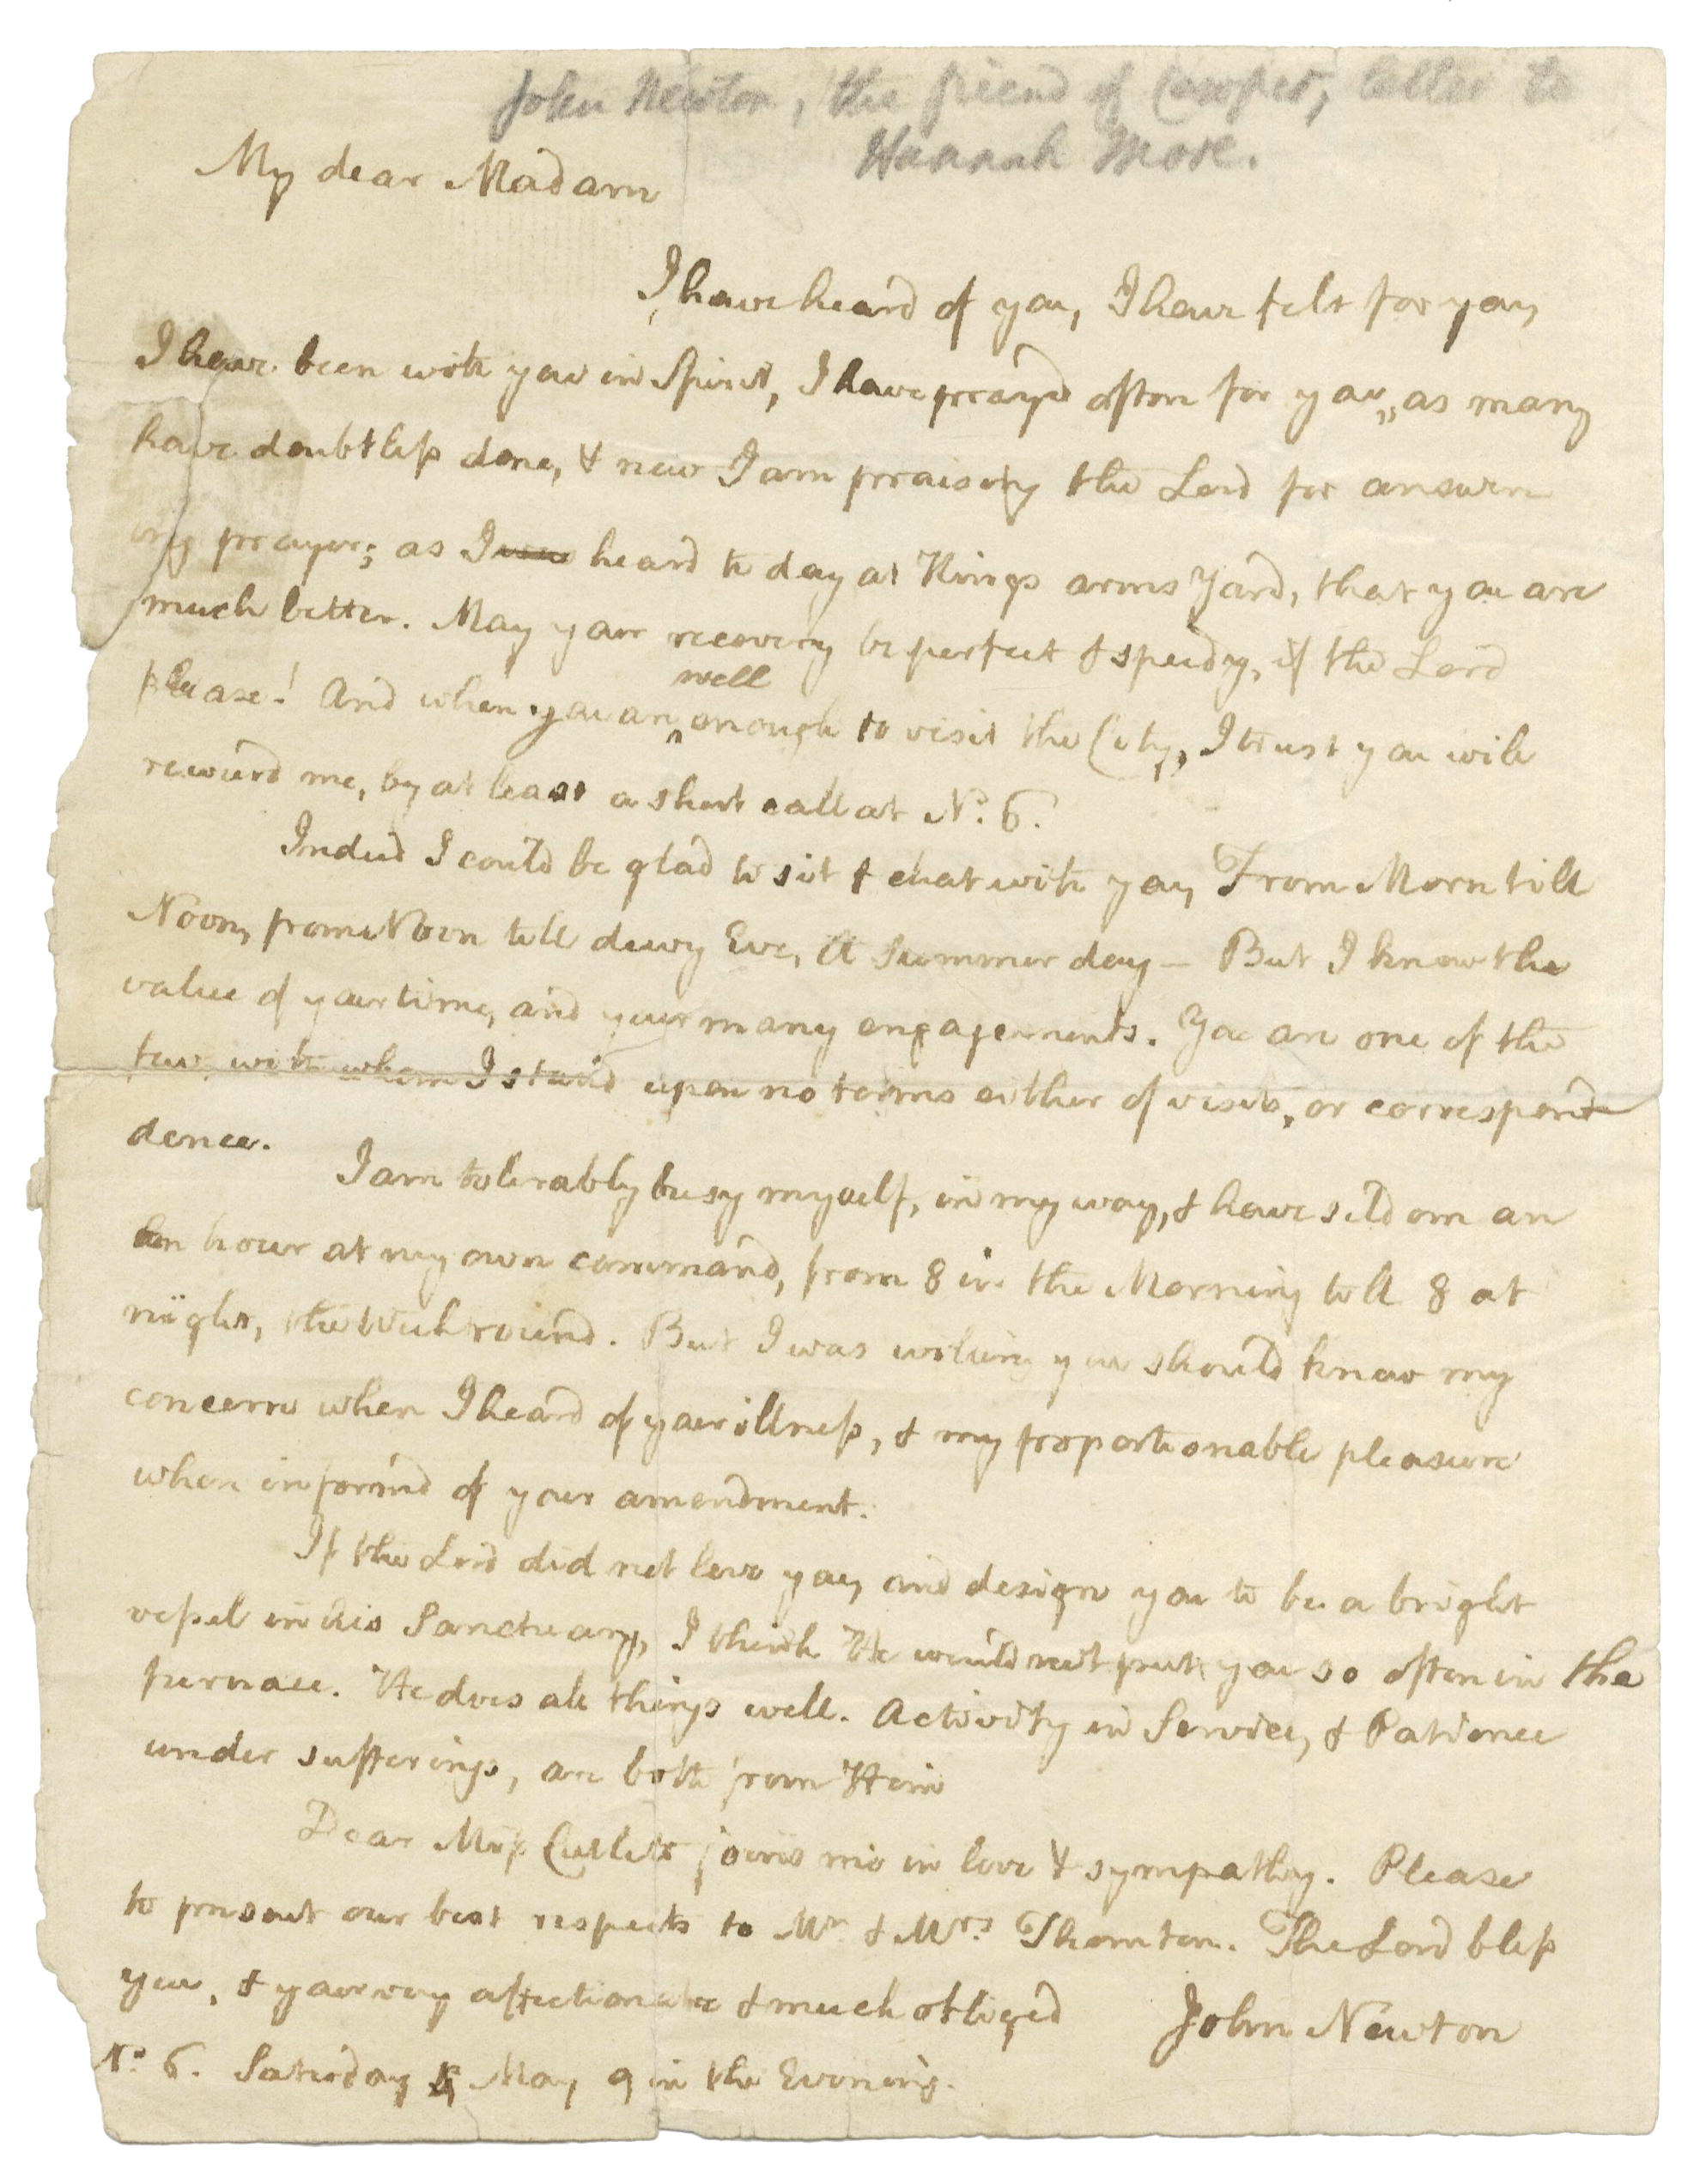 John Newton, the friend of Cowper, letter to
Hannah More.
My dear Madam
I have heard of you, I have felt for you,
I have been with you in Spirit, I have pray'd often for you, as many
have doubtless done, & now I am praising the Lord for answer
ing prayer; as I heard to day at Kings arms Yard, that you are
much better. May your recovery be perfect & speedy, if the Lord
please! And when you are well enough to visit the City, I trust you will
reward me, by at least a short call at No. 6.
Indeed I could be glad to sit & chat with you, From Morn till
Noon, from Noon till dewy Eve, A Summer day — But I know the
value of your time, and your many engagements. You are one of the
few with whom I stand upon no terms either of visits, or correspond
dence.
I am tolerably busy myself, in my way, & have seldom an
hour at my own command, from 8 in the Morning till 8 at
night, the Week round. But I was willing you should know my
concern when I heard of your illness, & my proportionable pleasure
when inform'd of your amendment.
If the Lord did not love you, and design you to be a bright
vessel in his Sanctuary, I think He would not put you so often in the
furnace. He does all things well. Activity in Service, & Patience
under sufferings, are both from Him
Dear Miss Catlett joins me in love & sympathy. Please
to present our best respects to Mr. & Mrs. Thornton. The Lord bless
you, & your very affectionate & much obliged John Newton
No. 6. Saturday May 9 in the Evening.